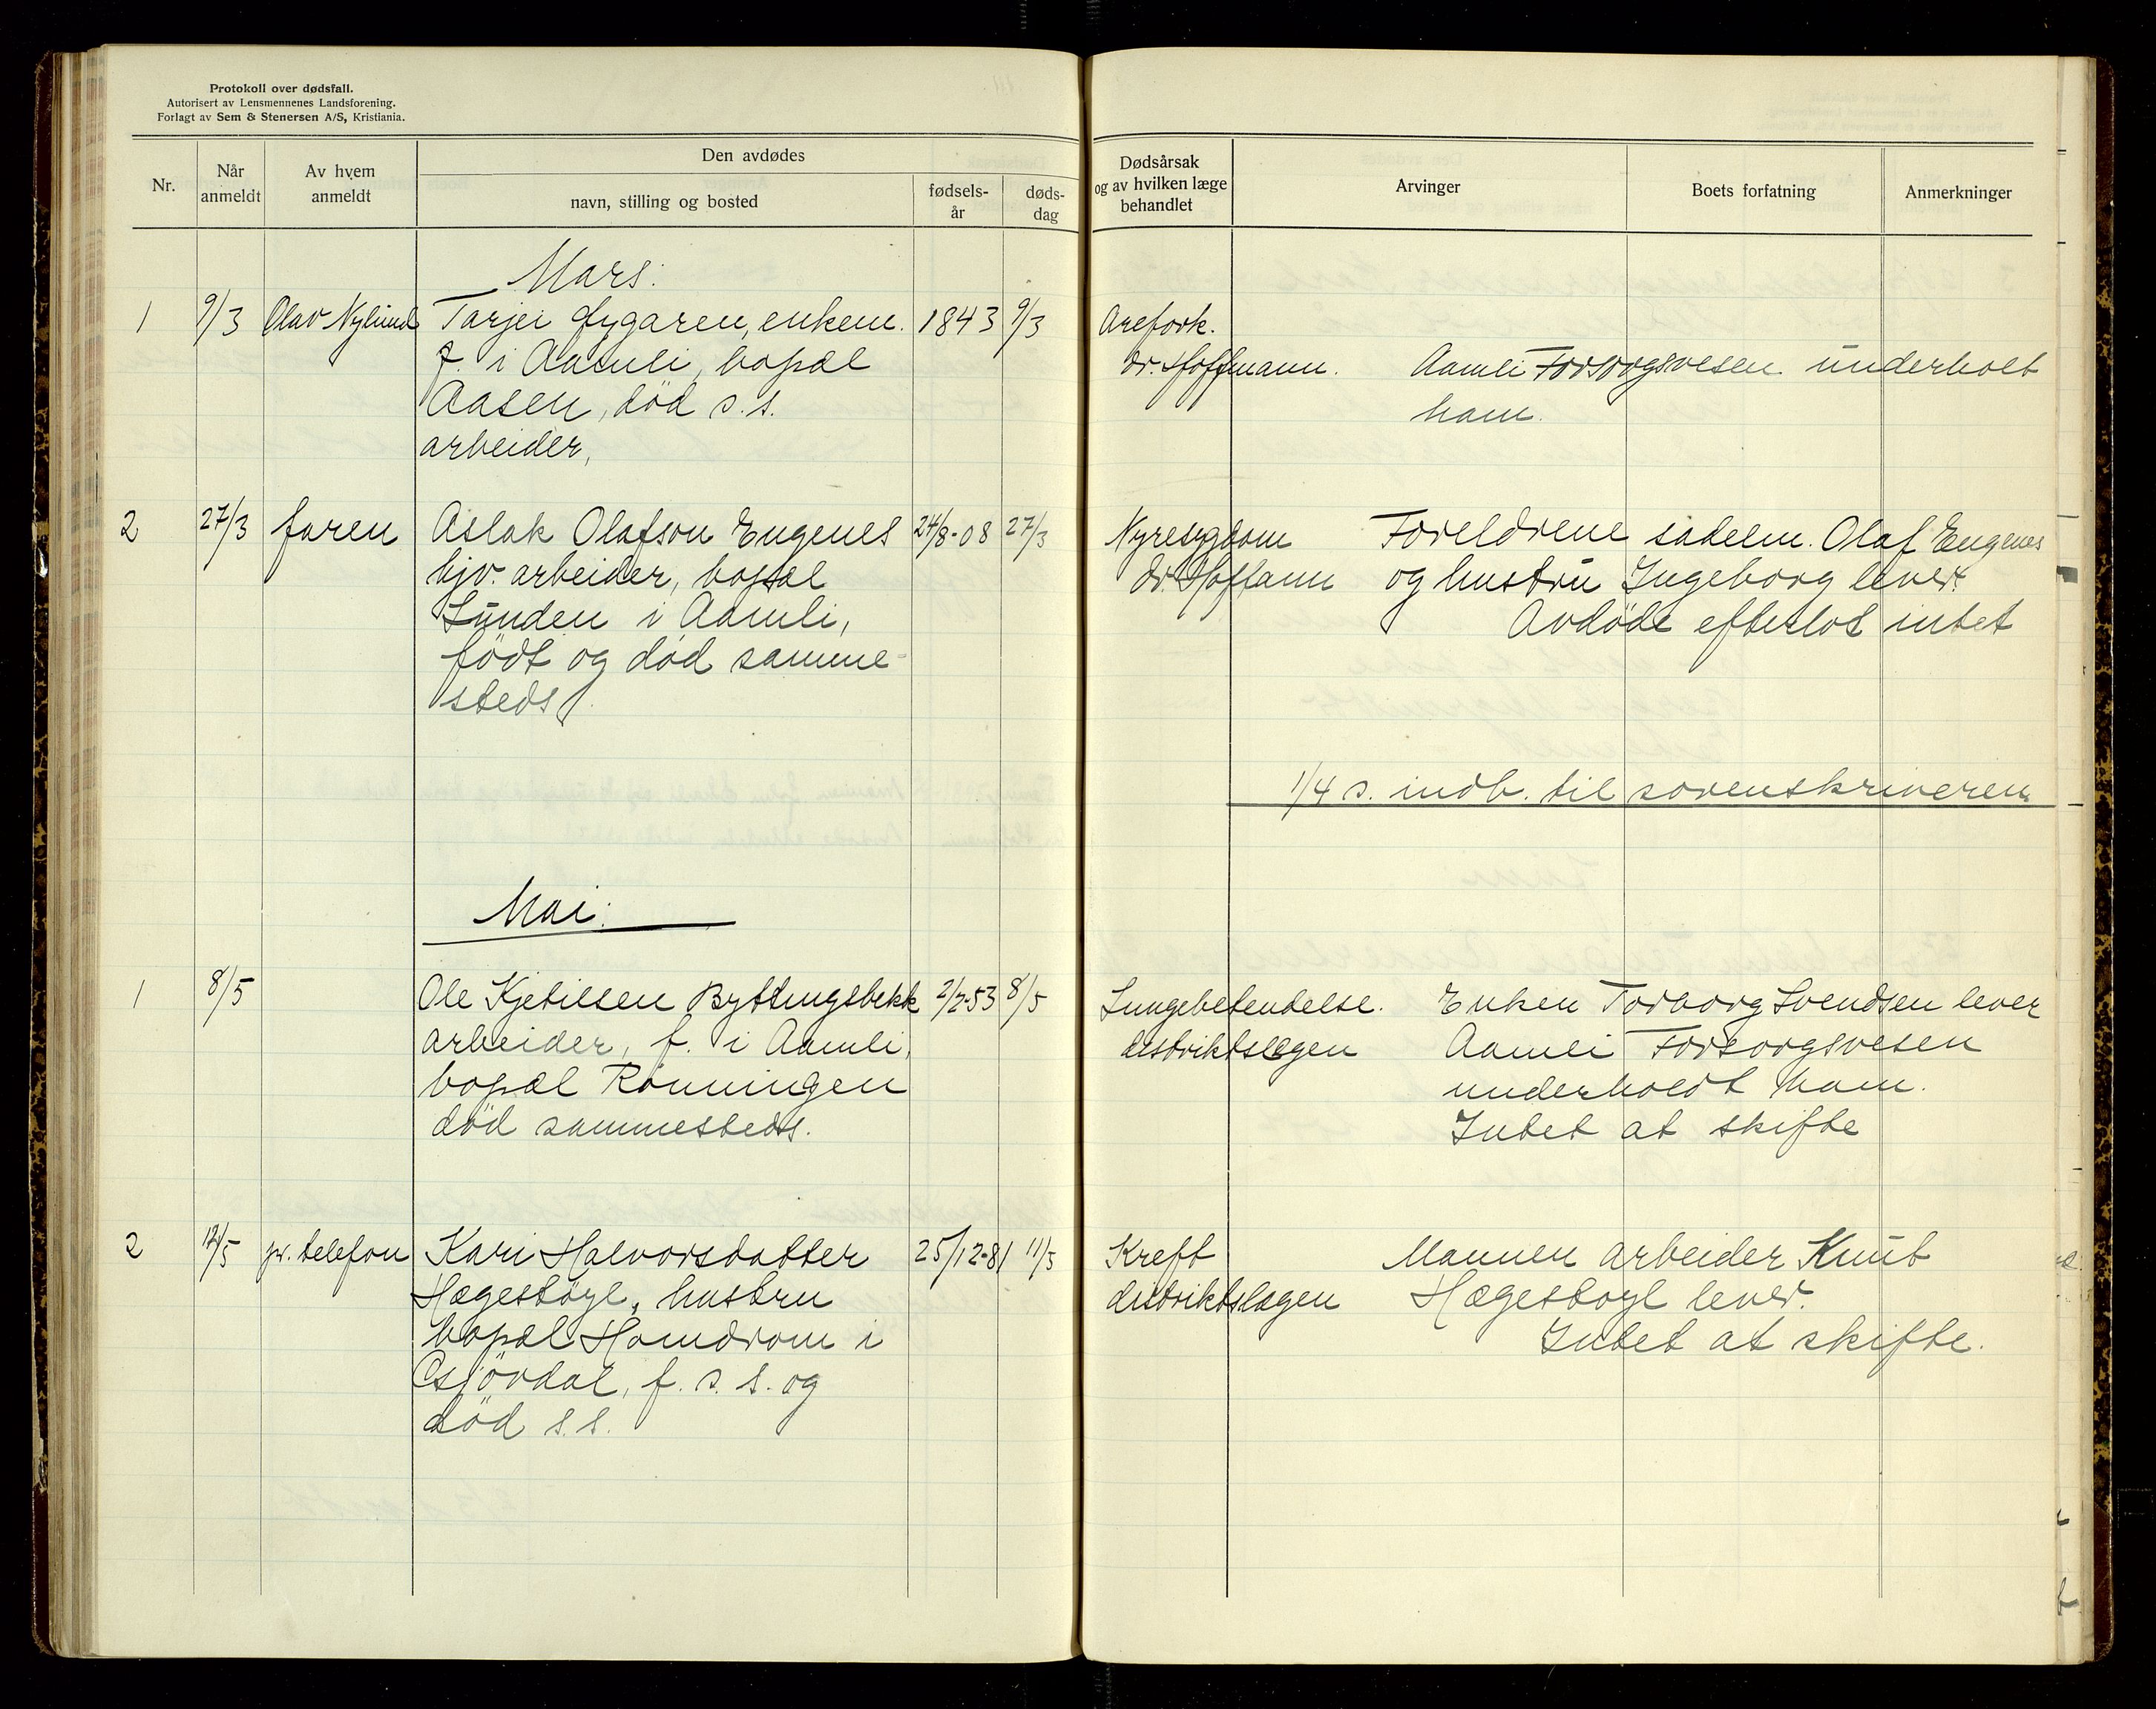 Protokoll over dødsfall.
Autorisert av Lensmennenes Landsforening.
Forlagt av Sem & Stenersen A/S, Kristiania.
Nr.
Når anmeldt
Av hvem anmeldt
Den avdødes
navn, stilling og bosted
fødsels-år
døds-dag
Dødsårsak og av hvilken læge behandlet
Arvinger
Boets forfatning
Anmerkninger
Mars:
1 9/3 Olav Nylund Tarjei Lygaren, enkem. 1843 9/3 Arefork.
f. i Aamli, bopæl dr. Hoffmann. Aamli Forsorgsvesen underholt
Aasen, död s. s. ham.
arbeider,
2 27/3 faren Aslak Olafson Engenes 24/8-08 27/3 Nyresygdom Foreldrene sadelm. Olaf Engenes
hjv. arbeider, bopæl dr. Hoffann og hustru Ingeborg lever.
Lunden i Aamli, Avdöde efterlot intet
födt og död samme-
steds.
1/4 s. indb. til sorenskriveren
Mai:
1 8/5 Ole Kjetilsen Byttingsbekk 2/2-53 8/5 Lungebetendelse. Enken Torborg Svendsen lever
arbeider, f. i Aamli, distriktslægen Aamli Forsorgsvesen
bopæl Rönningen underholdt ham.
död sammesteds. Intet at skifte
2 12/5 pr. telefon Kari Halvorsdatter 25/12-81 11/5 Kreft Mannen arbeider Knut
Hægestöyl, hustru distriktslægen Hægestöyl lever.
bopæl Homdrom i Intet at skifte.
Gjövdal, f. s. s. og
död s. s.